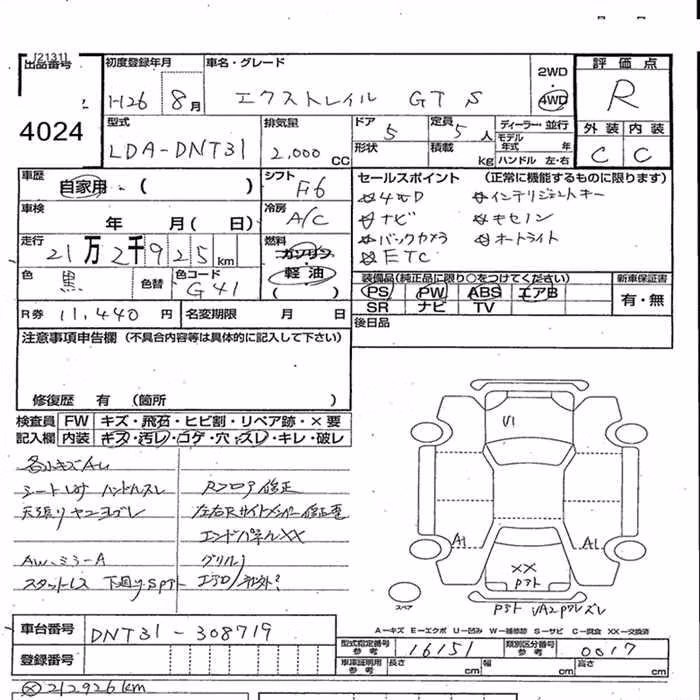 [2131]
出品番号
4024
初度登録年月
H26 8月
車名・グレード
エクストレイル GT S
2WD
4WD
評価点
R
外装 内装
C C
型式
LDA-DNT31
排気量
2,000 CC
ドア 5
形状
定員 5人
積載 kg
ディーラー・並行
モデル
年式 年
ハンドル 左・右
車歴
自家用 ( )
シフト
F6
車検
年 月( 日)
冷房
A/C
走行
21万2千925km
燃料
ガソリン
軽油
( )
色
黒
色替
色コード
G41
R券 11,440円
名変期限 月 日
セールスポイント (正常に機能するものに限ります)
4WD インテリジェントキー
ナビ キセノン
バックカメラ オートライト
ETC
装備品(純正品に限り○をつけてください)
PS PW ABS エアB
SR ナビ TV
新車保証書
有・無
後日品
注意事項申告欄 (不具合内容等は具体的に記入して下さい)
修復歴 有 (箇所 )
検査員 FW キズ・飛石・ヒビ割・リペア跡・×要
記入欄 内装 キズ・汚レ・コゲ・穴・スレ・キレ・破レ
各小キズAU
シート ハンドルスレ
天張リヤニヨゴレ
AW、ミラーA
スタットレス 下廻りSアト
Rフロア修正
左右Rサイドメンバー修正歪
エンドパネルXX
グリル
エアロ/社外?
V1
A1
A1
XX
Pアト
スペア
Pアト VA2Pワレズレ
A－キズ E－エクボ U－凹み W－補修跡 S－サビ C－腐食 XX－交換済
車台番号
DNT31-308719
登録番号
型式指定番号
参考
16151
類別区分番号
参考
0017
車庫証明用
参考
長さ cm
幅 cm
高さ cm
212926km